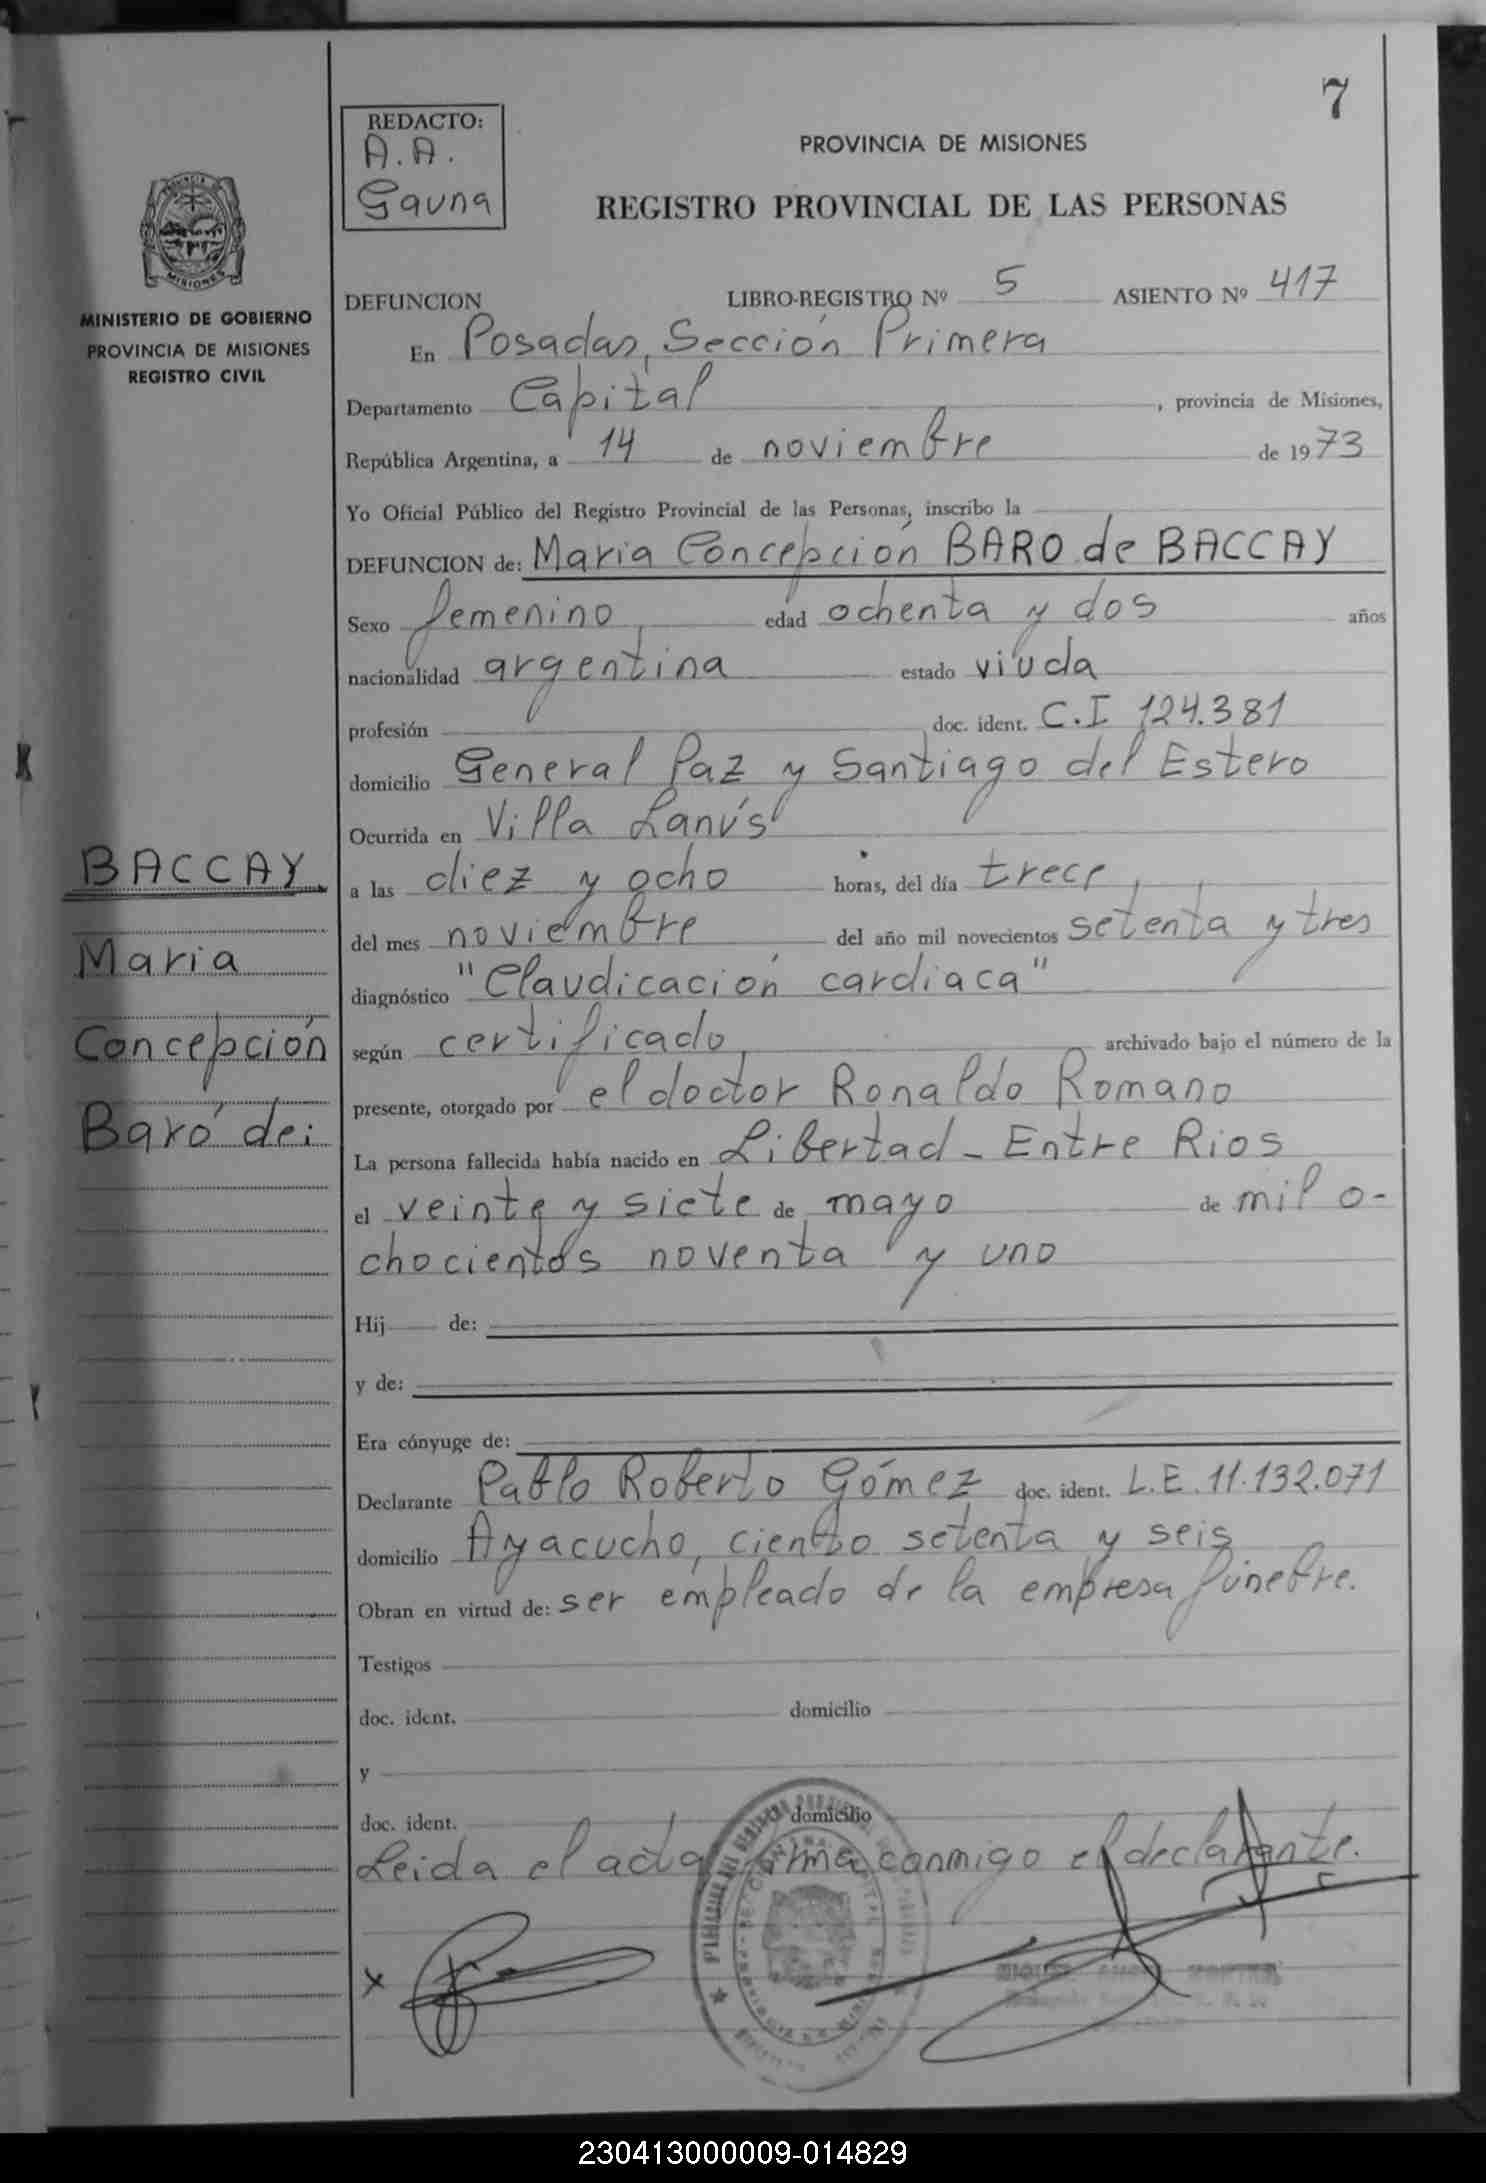 7
REDACTO:
A.A.
Gauna
PROVINCIA DE MISIONES
REGISTRO PROVINCIAL DE LAS PERSONAS
MISIONES
MINISTERIO DE GOBIERNO
PROVINCIA DE MISIONES
REGISTRO CIVIL
DEFUNCION LIBRO-REGISTRO Nº 5 ASIENTO Nº 417
En Posadas, Sección Primera
Departamento Capital, provincia de Misiones,
República Argentina, a 14 de noviembre de 1973
Yo Oficial Público del Registro Provincial de las Personas, inscribo la
DEFUNCION de: Maria Concepción BARO de BACCAY
Sexo femenino, edad ochenta y dos años
nacionalidad argentina estado viuda
profesión doc. ident. C.I 124.381
domicilio General Paz y Santiago del Estero
Ocurrida en Villa Lanús
a las diez y ocho horas, del día trece,
del mes noviembre del año mil novecientos setenta y tres
diagnóstico "Claudicación cardíaca"
según certificado, archivado bajo el número de la
presente, otorgado por el doctor Ronaldo Romano
La persona fallecida había nacido en Libertad - Entre Rios
el veinte y siete de mayo de mil o-
chocientos noventa y uno
Hij de:
y de:
Era cónyuge de:
Declarante Pablo Roberto Gómez doc. ident. L.E. 11.132.071
domicilio Ayacucho, ciento setenta y seis
Obran en virtud de: ser empleado de la empresa fúnebre.
Testigos
doc. ident. domicilio
y
doc. ident. domicilio
Leida el acta firma conmigo el declarante.
x
BACCAY
Maria
Concepción
Baró de:
230413000009-014829